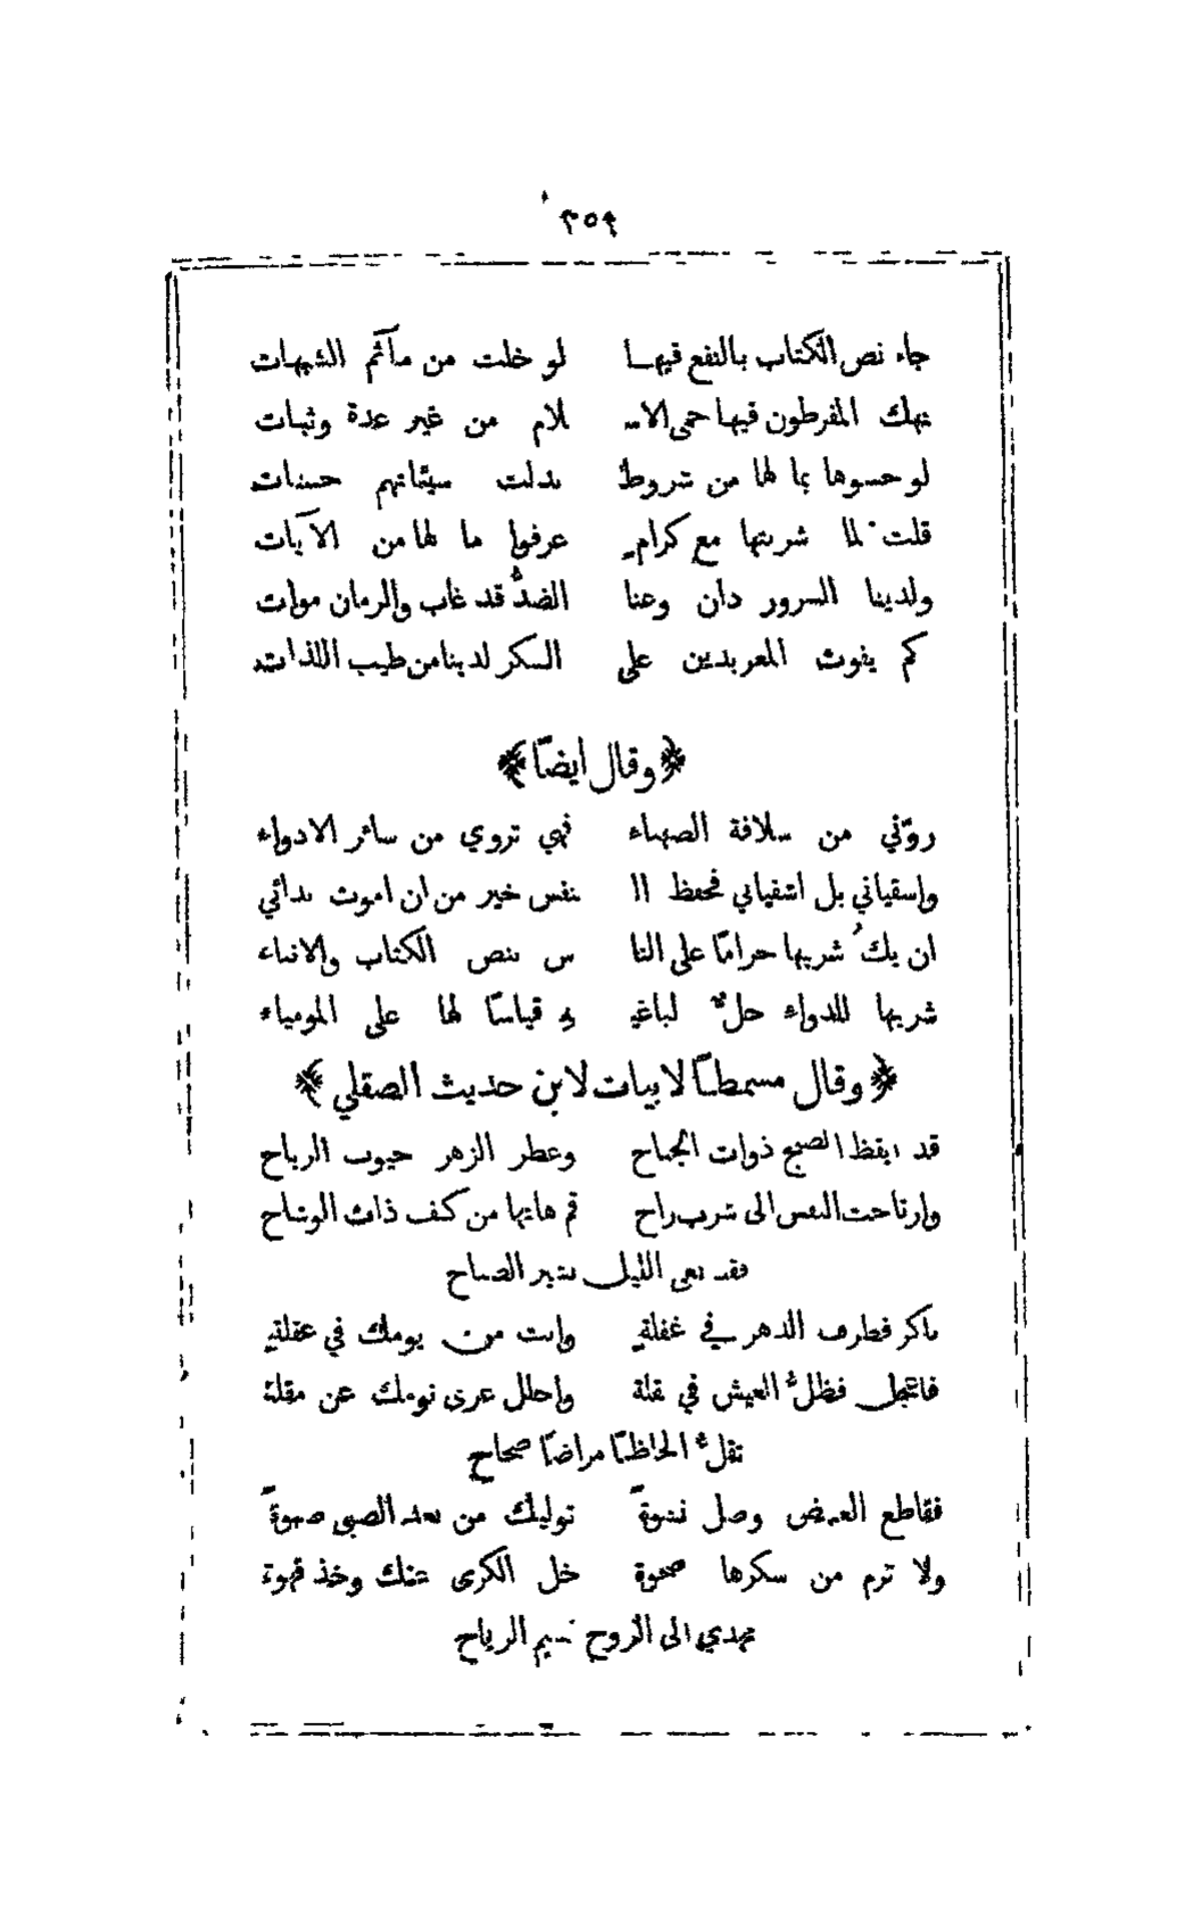 ٣٥٩
جاء نص الكتاب بالنفع فيها لو خلت من مآثم الشبهات
نهك المفرطون فيها حمى الاسـ ـلام من غير عدة وثبات
لو حسوها بما لها من شروط بدلت سيئاتهم حسنات
قلت لما شربتها مع كرام عرفوا ما لها من الآيات
ولدينا السرور دان وعنا الضدُّ قد غاب والزمان موات
كم يفوت المعربدين على السكر لدينا من طيب اللذات
﴿وقال ايضاً﴾
روّني من سلافة الصهباء فهي تروي من سائر الادواء
واسقياني بل اشفياني فحفظ الـ ـنفس خير من ان اموت بدائي
ان يكُ شربها حراماً على النا س بنص الكتاب والافتاء
شربها للدواء حلٌّ لباغيـ ـه قياساً لها على المومياء
﴿وقال مسمطاً لابيات لابن حديث الصقلي﴾
قد ايقظ الصبح ذوات الجناح وعطر الزهر جيوب الرياح
وارتاحت النفس الى شرب راح قم هاتها من كف ذات الوشاح
فقد نعى الليل بشير الصباح
باكر فطرف الدهر في غفلةٍ وانت من يومك في عقلةٍ
فاعجل فظلُّ العيش في نقلة واحلل عرى نومك عن مقلة
تقلُّ الحاظاً مراضاً صحاح
فقاطع الغمض وصل نشوةً توليك من بعد الصبى صبوةً
ولا ترم من سكرها صحوة خل الكرى عنك وخذ قهوة
تهدي الى الروح نسيم الرياح